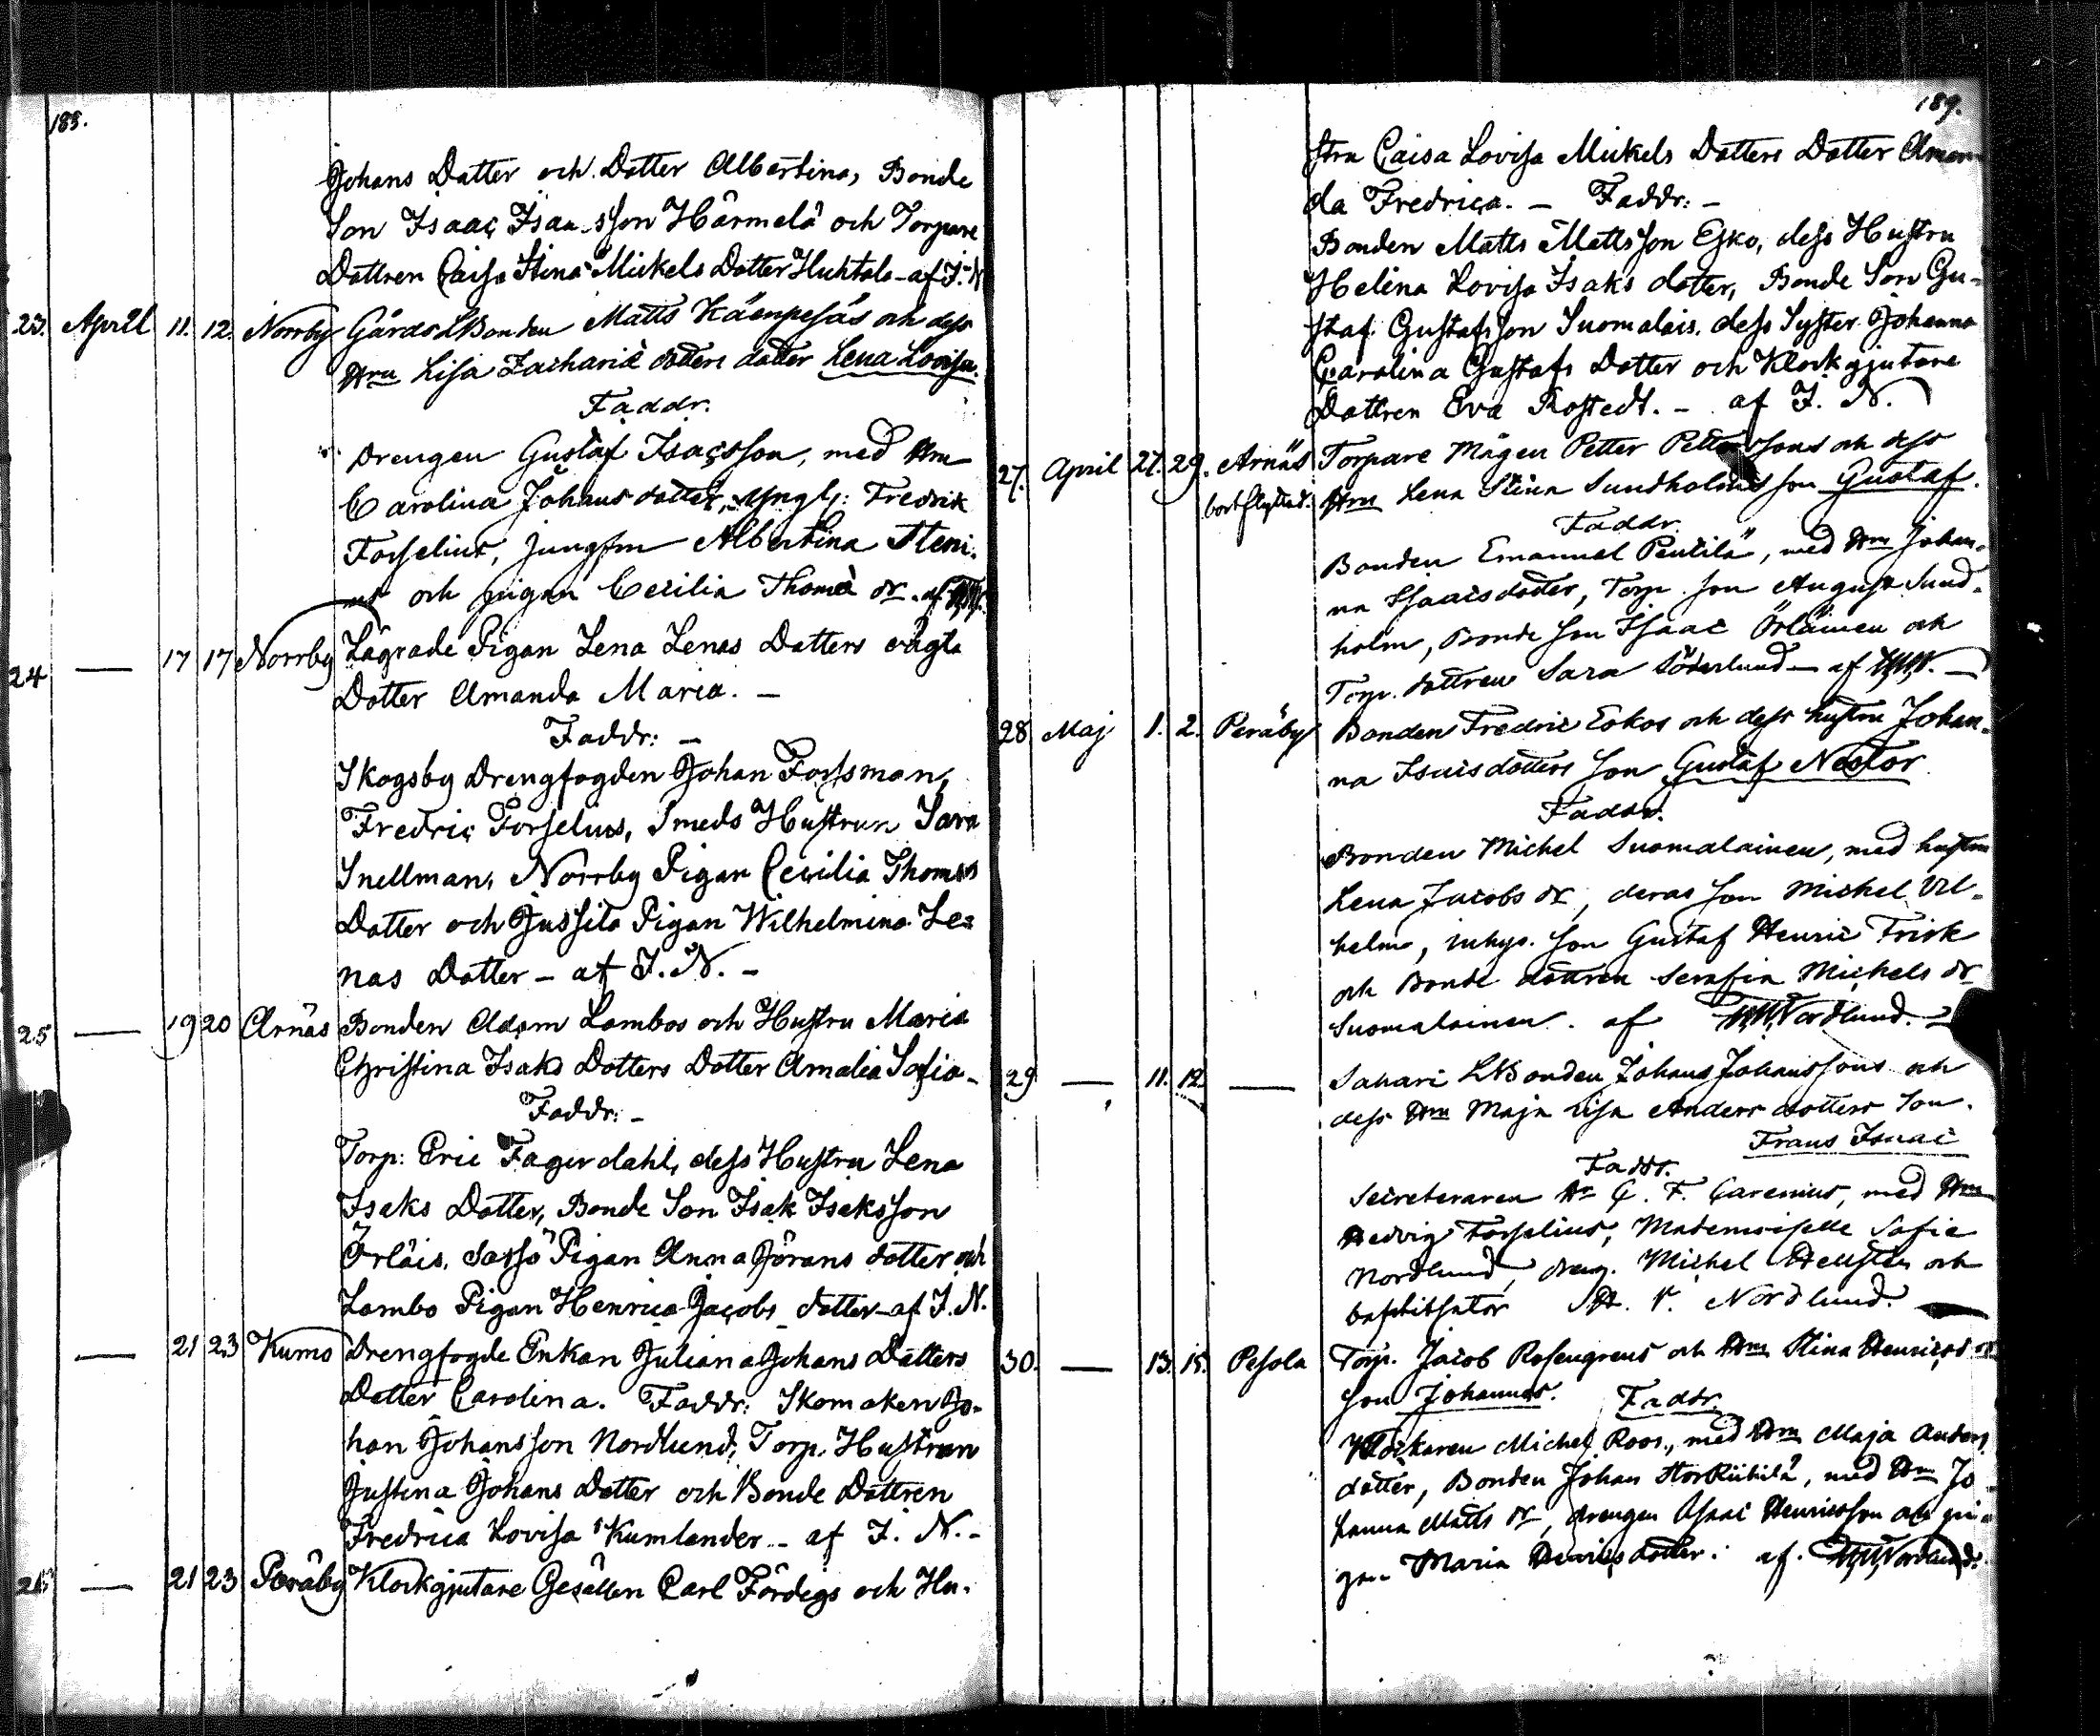 188.
Johans Dotter och Dotter Albertina, Bonde
Son Isaac Isaacsson Härmelä och Torpare
Dottren Caisa Stina Mickels Dotter Huhtala - af I. N
23. April 11. 12. Norrby Gårds LBonden Matts Käenpesäs och dess
Hru Lisa Zachariæ dotters dotter Lena Lovisa.
Faddr.
Drengen Gustaf Isacsson, med Hru
Carolina Johans dotter, Yngl: Fredrik
Forselius, Jungfrn Albertina Steni-
us och pigan Cecilia Thomæ dr. af
24 — 17 17 Norrby Lägrade Pigan Lena Lenas Dotters oägta
Dotter Amanda Maria. —
Faddr: —
Skogsby Drengfogden Johan Forssman,
Fredric Forselius, Smeds Hustrun Sara
Snellman, Norrby Pigan Cecilia Thomas
Dotter och Jussila Pigan Wilhelmina Le=
nas Dotter — af I. N. —
25 — 19 20 Arnäs Bonden Adam Lambos och Hustru Maria
Christina Isaks Dotters Dotter Amalia Sofia —
Faddr: —
Torp: Eric Fagerdahl, dess Hustru Lena
Isaks Dotter, Bonde Son Isak Isaksson
Örläis, Sassö Pigan Anna Jörans dotter och
Lambo Pigan Henrica Jacobs dotter - af I. N.
— 21 23 Kumo Drengfogde Enkan Juliana Johans Dotters
Dotter Carolina. Faddr: Skomaken Jo-
han Johansson Nordlund, Torp. Hustrun
Justina Johans Dotter och Bonde Dottren
Fredrica Lovisa Kumlander — af I. N. —
26 — 21 23 Peräby Klockgjutare Gesällen Carl Fördegs och Hu-
189.
stru Caisa Lovisa Mickels Dotters Dotter Aman
da Fredrica. — Faddr: —
Bonden Matts Mattsson Esko, dess Hustru
Helena Lovisa Isaks dotter, Bonde Son Gu-
staf Gustafsson Suomalais, dess Syster Johanna
Carolina Gustafs Dotter och Klockgjutare
Dottren Eva Rostedt. — af I. N.
27. April 27. 29. Arnäs Torpare Mågen Petter Petterssons och dess
bortflyttad. Hru Lena Stina Sundholms son Gustaf.
Faddr.
Bonden Emanuel Penttilä, med Hru Johan-
na Isaacsdotter, Torp. son August Sund-
holm, Bonde son Isaac Örläinen och
Torp. dottren Sara Söderlund — af
28 Maj 1. 2. Peräby Bonden Fredric Eskos och dess hustru Johan-
na Isacsdotters son Gustaf Nestor
Faddr.
Bonden Michel Suomalainen, med hustru
Lena Jacobs dr, deras son Michel Vil-
helm, inhys. son Gustaf Henric Frisk
och Bonde dottren Serafia Michels dr
Suomalainen. af Nordlund.
29 — 11. 12. — Sahari LBonden Johans Johanssons och
dess Hru Maja Lisa Anders dotters son.
Frans Isaac
Faddr.
Secreteraren Hr C. F. Carenius, med Hru
Hedvig Forselius, Mademoiselle Sofie
Nordlund, dreng. Michel Hellsten och
baptisator Nordlund.
30. — 13. 15. Pesola Torp. Jacob Rosengrens och Hru Stina Henrics dr
son Johannes. Faddr.
Klockaren Michel Roos, med Hru Maja Anders
dotter, Bonden Johan StorRiihilä, med Hru Jo
hanna Matts dr, drengen Isaac Henricsson och pi-
gan Maria Henricsdotter. af. Nordlund.